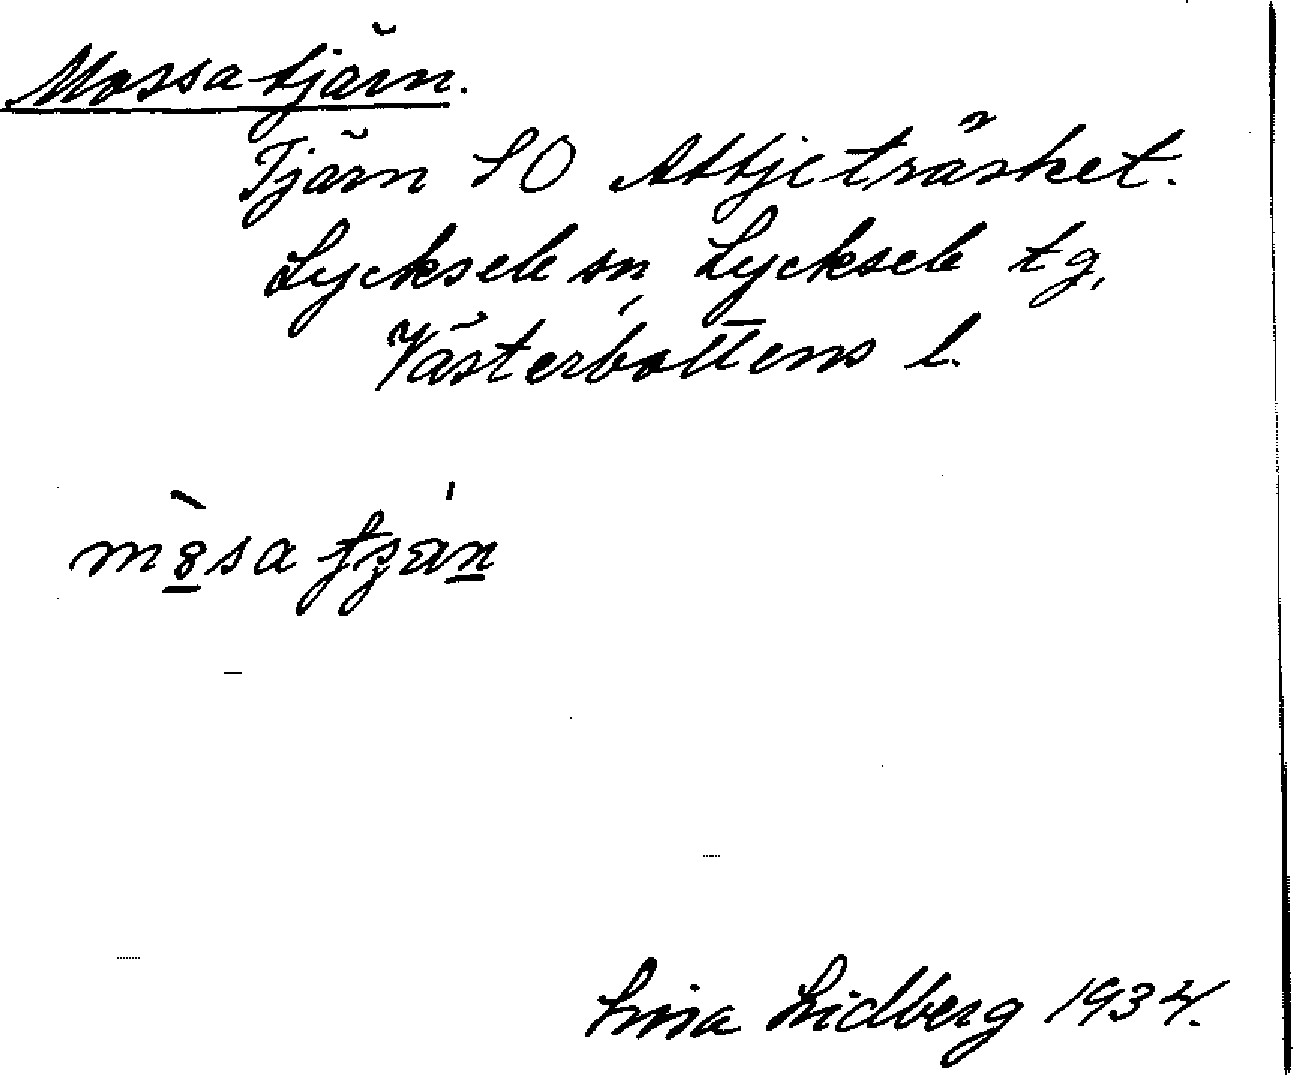 Mossatjärn.
Tjärn SO Attjeträsket.
Lycksele sn, Lycksele tg,
Västerbottens l.
Lisa Lidberg 1934.